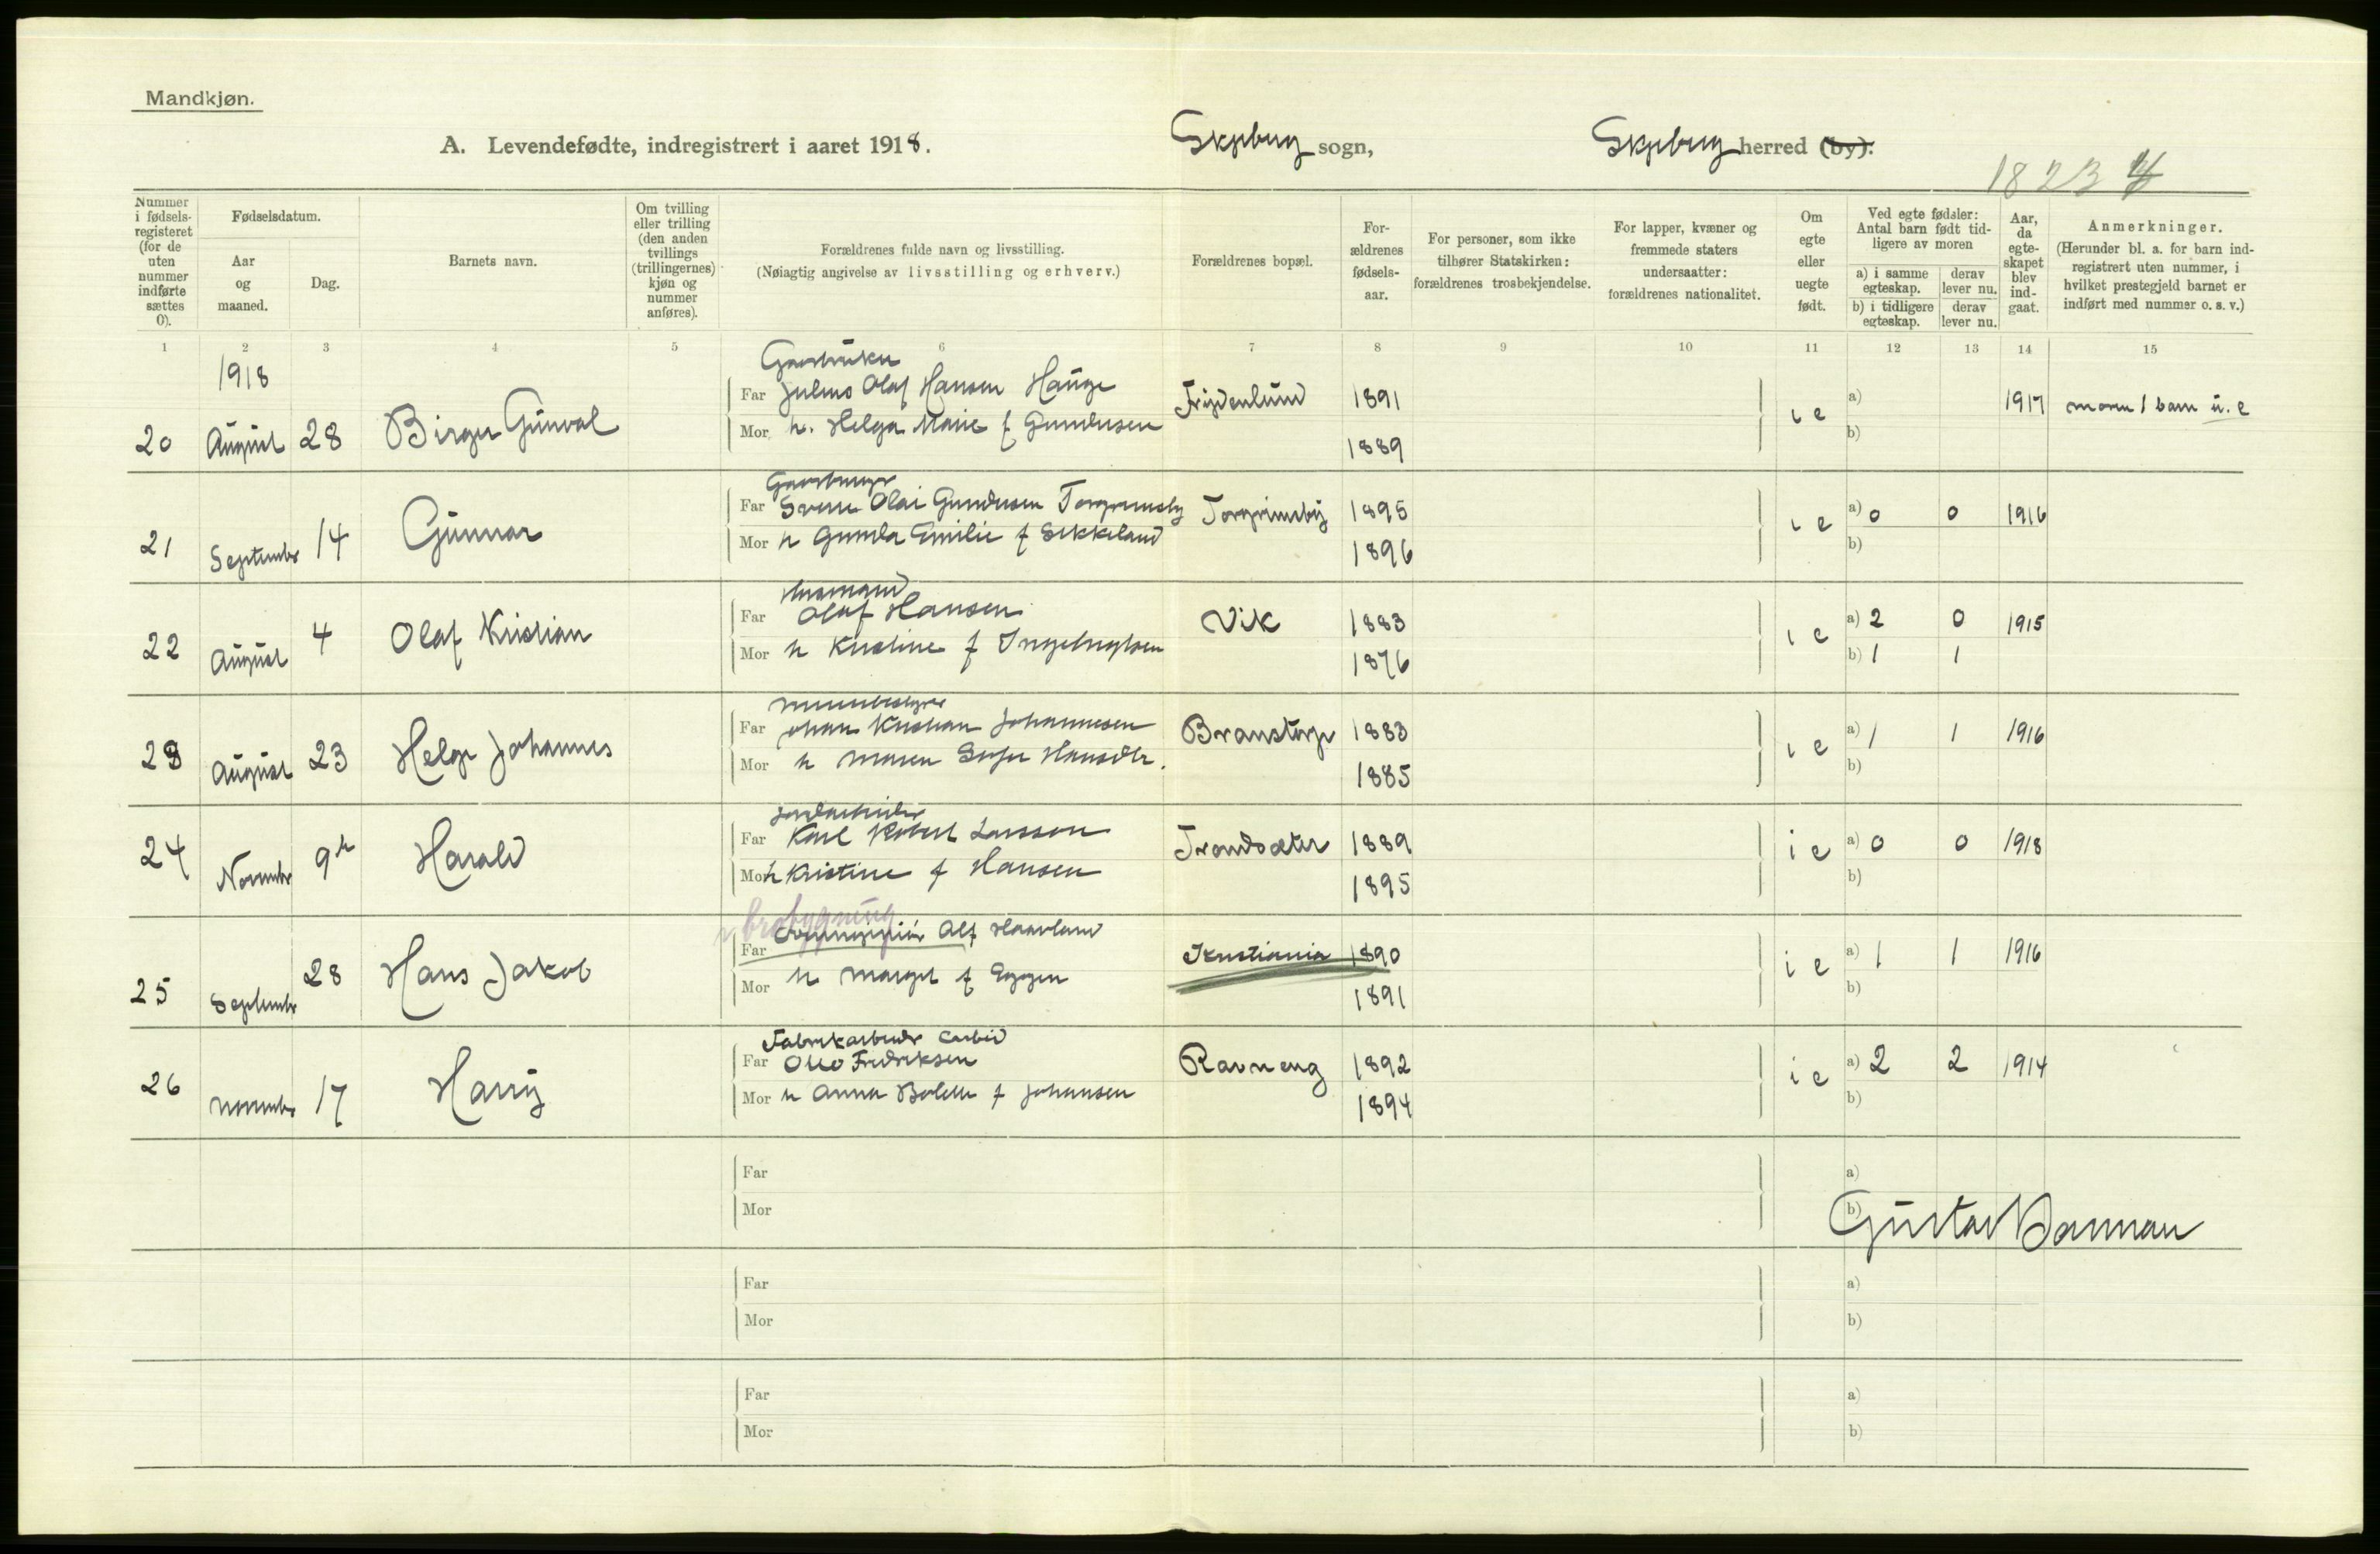 Mandkjøn.
A. Levendefødte, indregistrert i aaret 1918. Skjeberg sogn, Skjeberg herred (by).
1823
Nummer i fødsels-registeret (for de uten nummer indførte sættes 0).
Fødselsdatum.
Aar og maaned.
Dag.
Barnets navn.
Om tvilling eller trilling (den anden tvillings (trillingernes) kjøn og nummer anføres).
Forældrenes fulde navn og livsstilling.
(Nøiagtig angivelse av livsstilling og erhverv.)
Forældrenes bopæl.
For-ældrenes fødsels-aar.
For personer, som ikke tilhører Statskirken: forældrenes trosbekjendelse.
For lapper, kvæner og fremmede staters undersaatter: forældrenes nationalitet.
Om egte eller uegte født.
Ved egte fødsler: Antal barn født tid-ligere av moren
a) i samme egteskap. derav lever nu.
b) i tidligere egteskap. derav lever nu.
Aar, da egte-skapet blev ind-gaat.
Anmerkninger.
(Herunder bl. a. for barn ind-registrert uten nummer, i hvilket prestegjeld barnet er indført med nummer o. s. v.)
1 2 3 4 5 6 7 8 9 10 11 12 13 14 15
1918
Far Julius Olaf Hansen Hauge Frydenlund 1891 a) 1917 moren 1 barn u. e
20 August 28 Birger Gunval Mor h. Helga Marie f Gundersen 1889 i e b)
Far Sverre Olai Gundersen Torgrimsby Torgrimsby 1895 a) 0 0 1916
21 September 14 Gunnar Mor h Gunda Emilie f Sekkeland 1896 i e b)
Husmand
Far Olaf Hansen Vik 1883 a) 2 0 1915
22 August 4 Olaf Kristian Mor h Kristine f Ingebrigtsen 1876 i e b) 1 1
Far Johan Kristian Johannesen Branstorp 1883 a) 1 1 1916
23 August 23 Helge Johannes Mor h Maren Sofie Hansdtr. 1885 i e b)
Jordarbeider
Far Karl Robert Larsson Trondsæter 1889 a) 0 0 1918
24 Novembr 9de Harald Mor h Kristine f Hansen 1895 i e b)
brobygning
Far Alf Haavland Kristiania 1890 a) 1 1 1916
25 Septembr 28 Hans Jakob Mor h Margit f Eggen 1891 i e b)
Fabrikarbeider Carbid
Far Otto Fredriksen Ravneng 1892 a) 2 2 1914
26 November 17 Harry Mor h Anna Bolette f Johansen 1894 i e b)
Far a)
Mor b)
Gustav Dannan
Far a)
Mor b)
Far a)
Mor b)